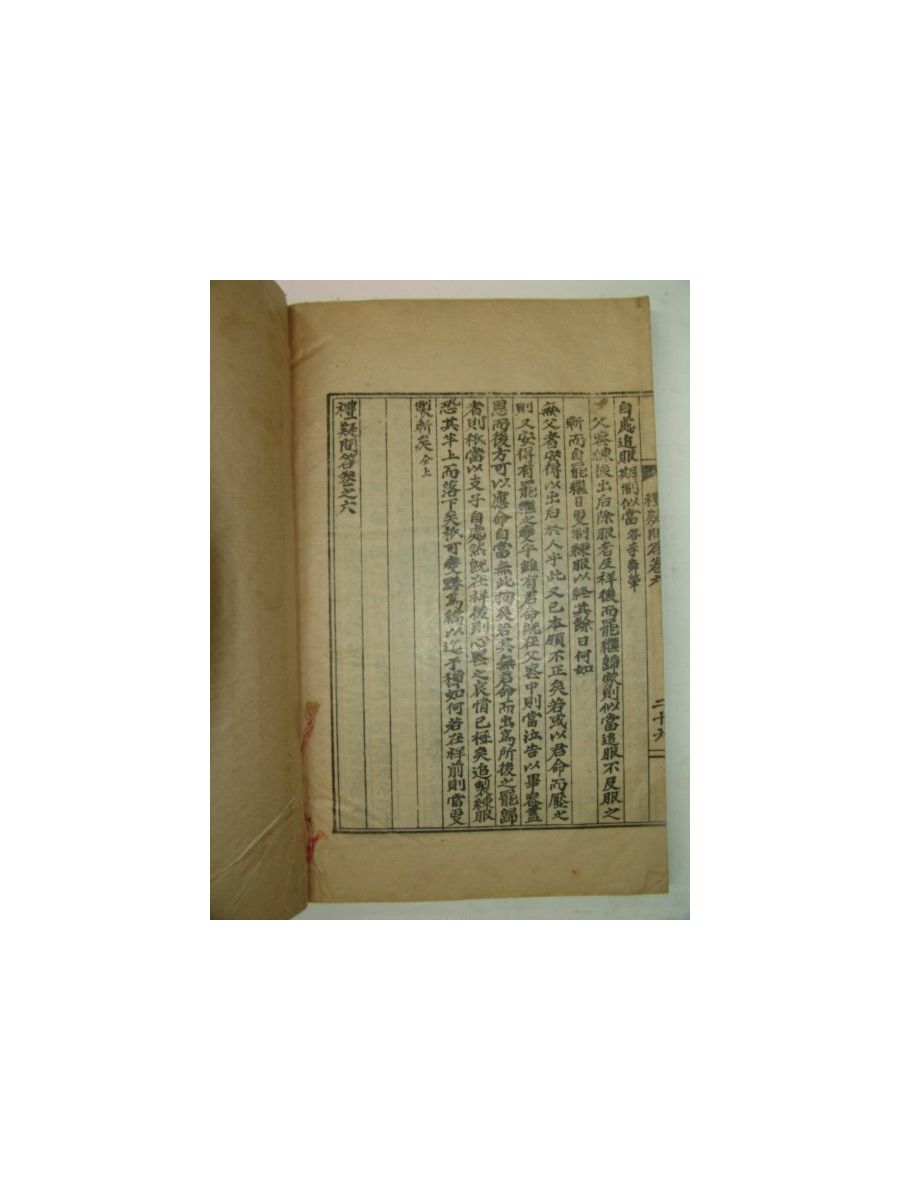 禮疑問答卷六
二十九
自處追服期制似當答李舜肇
父喪練後出后除服者及祥後而罷繼歸家則似當追服不及服之
斬而自罷繼日更制練服以終其餘日何如
無父者安得以出后於人乎此又已本領不正矣若或以君命而壓之
則又安得有罷繼之變乎雖有君命旣在父喪中則當泣告以畢喪蓋
思而後方可以應命自當無此拘矣若其無君命而出爲所後之罷歸
者則秪當以支子自處然旣在祥後則心喪之哀情已極矣追製練服
恐其半上而落下矣秪可變黲爲縞以迄于禫如何若在祥前則當更
製斬矣仝上
禮疑問答卷之六